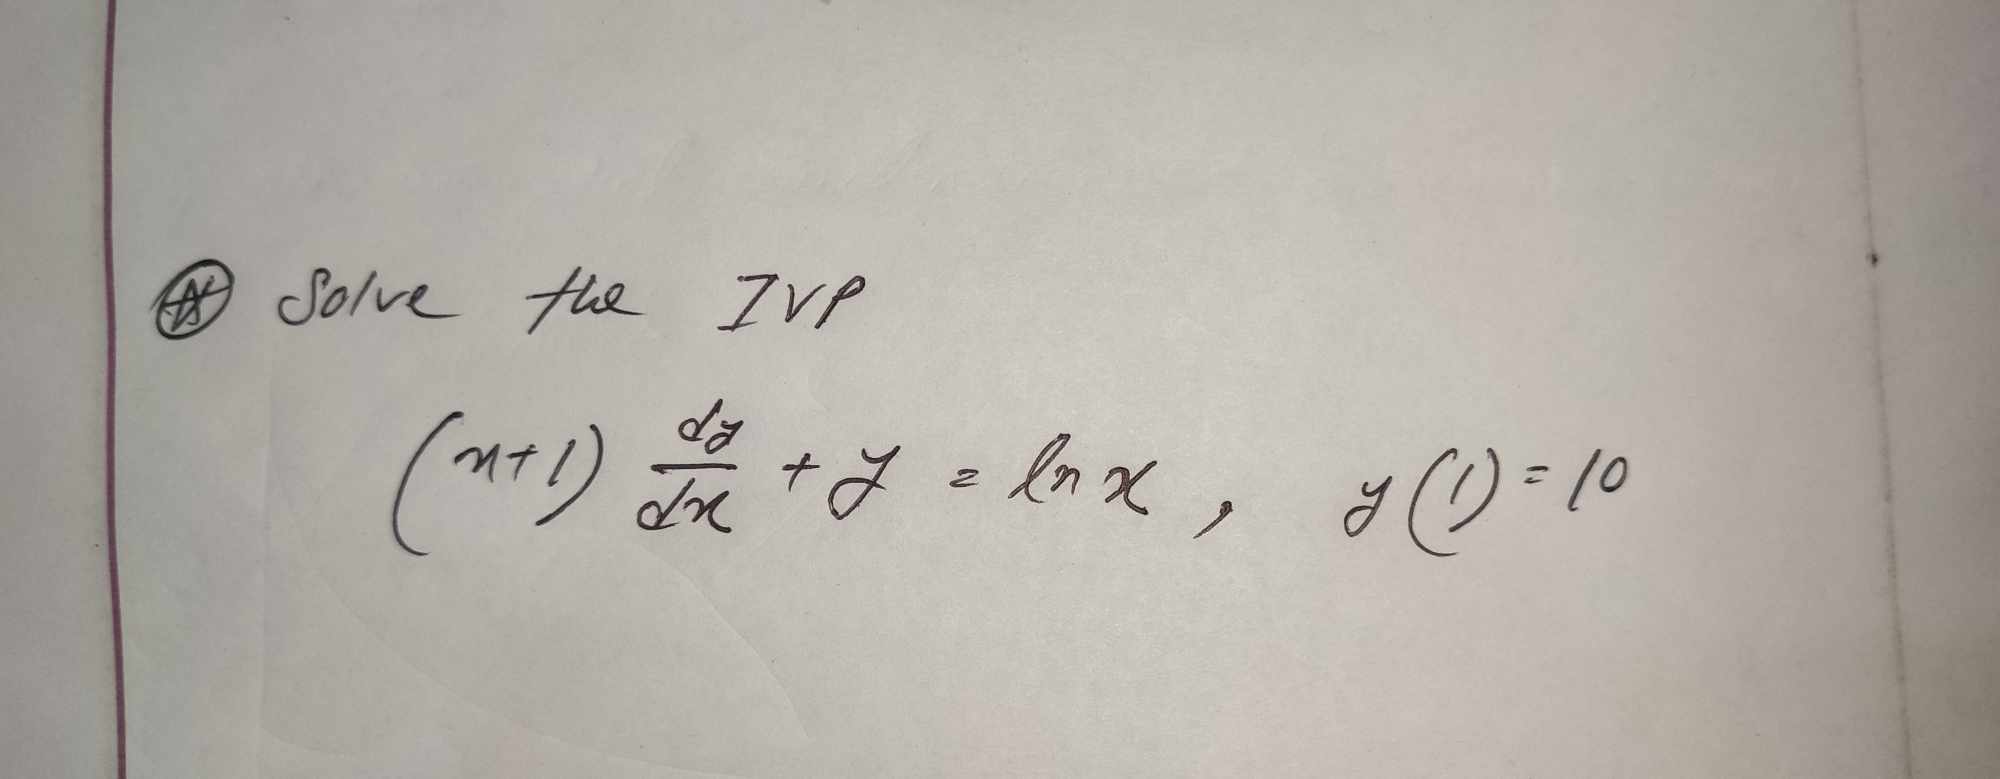 Solve the IVP
(x+1) dy/dx + y = ln x , y(1) = 10